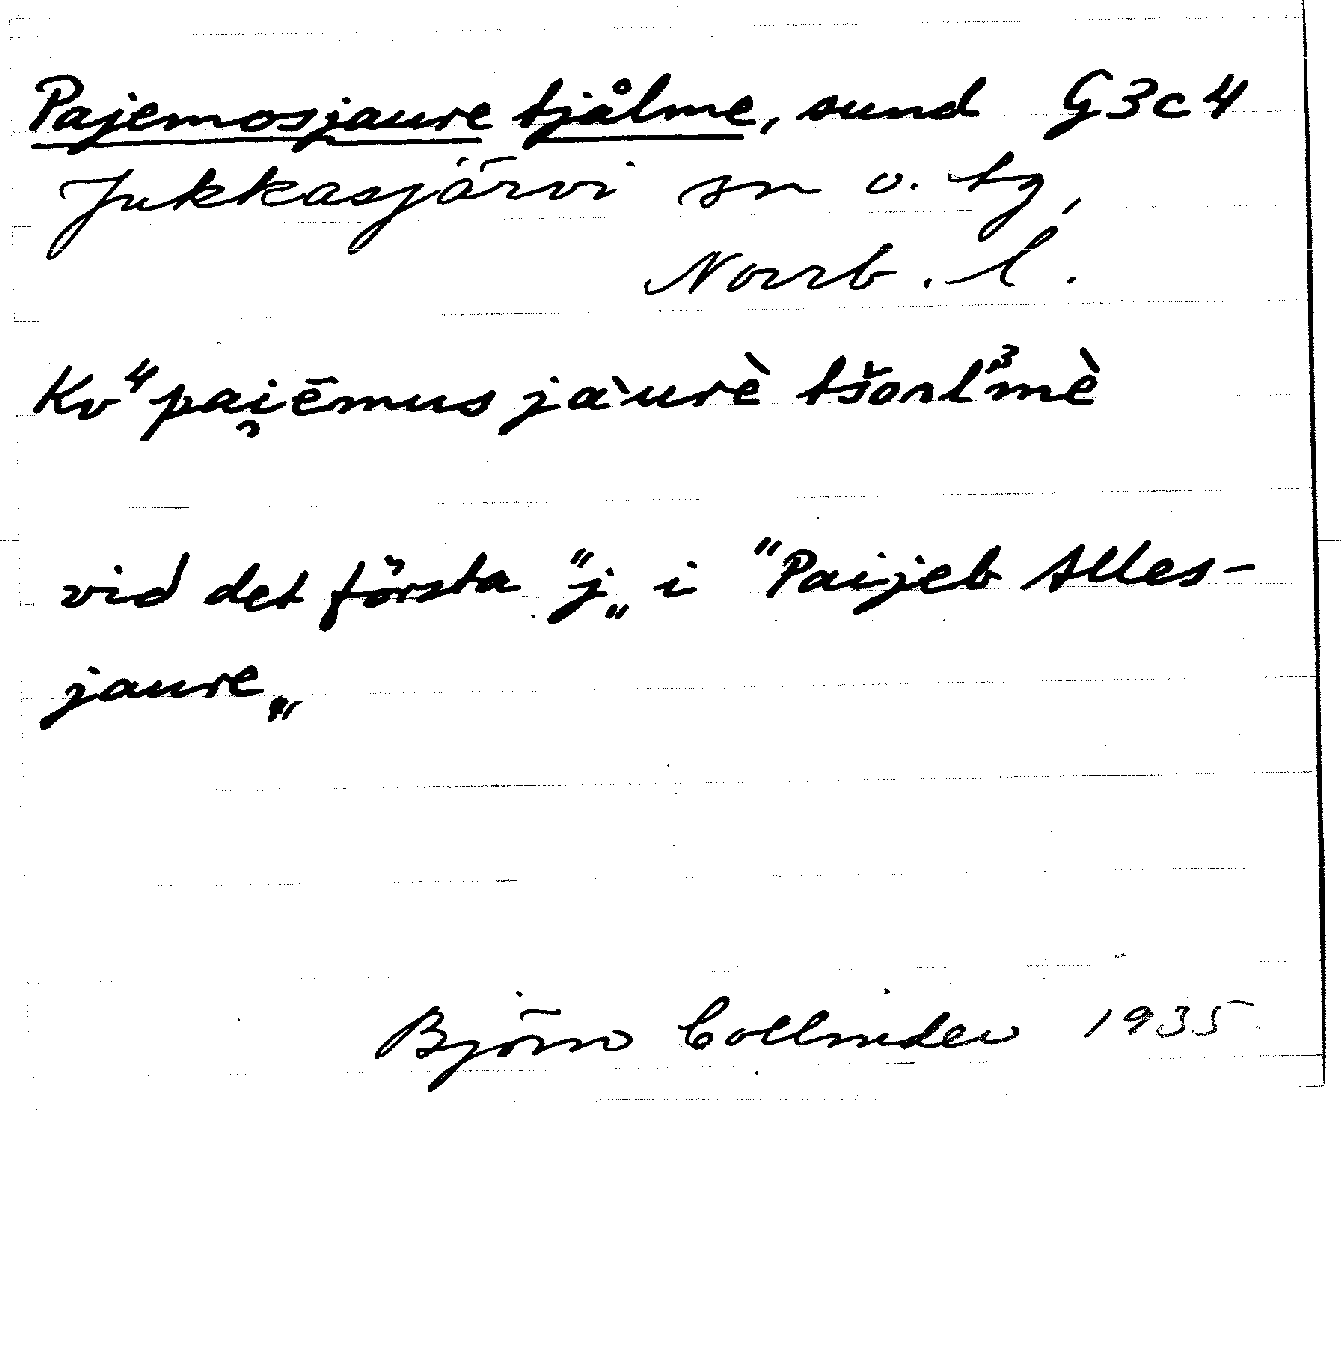 Pajemosjaure tjålme, sund G3c4
Jukkasjärvi sn o. tg,
Norrb. l.
Kv⁴ pai̯ēmus jàurè tšoₐl³mè
vid det första "j„ i "Paijeb Alles-
jaure„
Björn Collinder 1935